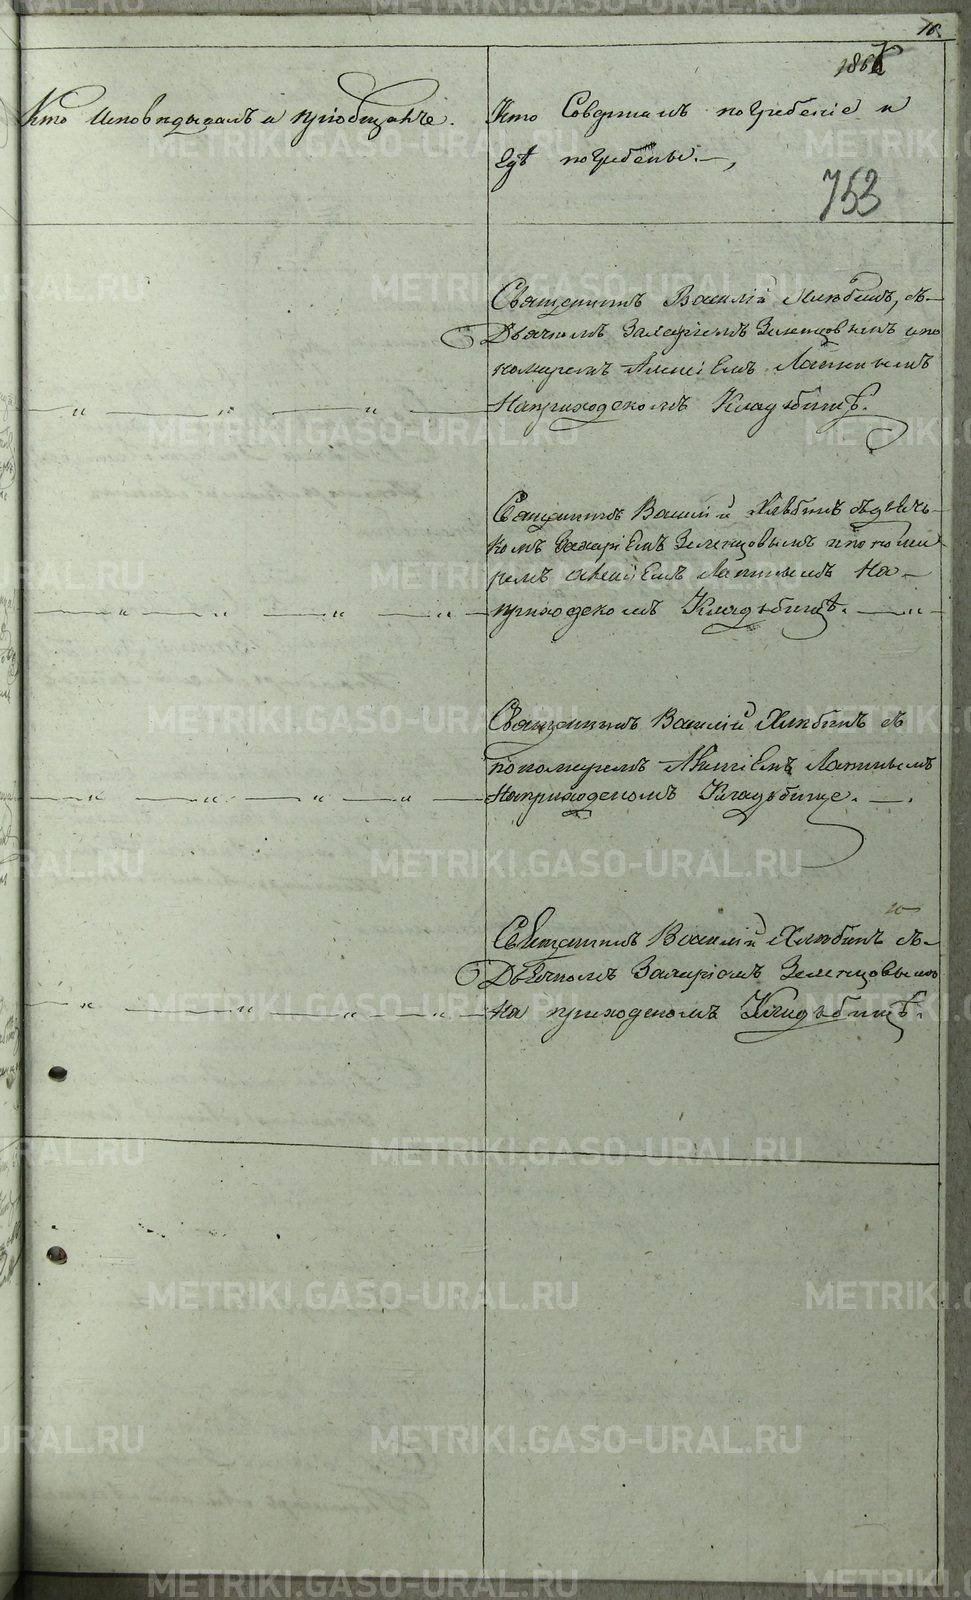 16.
186
Кто исповѣдывалъ и пріобщалъ.
Кто Совершалъ погребеніе и
гдѣ погребены.
753
Священникъ Василій Хлѣбинъ, съ
Дьячкомъ Захаріемъ Зеленцовымъ и по
номаремъ Алексіемъ Лапинымъ
На приходскомъ Кладбищѣ.
Священникъ Василій Хлѣбинъ съ дьяч-
комъ Захаріемъ Зеленцовымъ и понома-
ремъ Алексіемъ Лапинымъ На-
приходскомъ Кладъбищѣ.
Священникъ Василій Хлѣбинъ съ
пономаремъ Алексіемъ Лапинымъ
На приходскомъ Кладъбище.
Священникъ Василій Хлѣбинъ съ
Дьячкомъ Захаріемъ Зеленцовымъ
На приходскомъ Кладъбищѣ.
METRIKI.GASO-URAL.RU